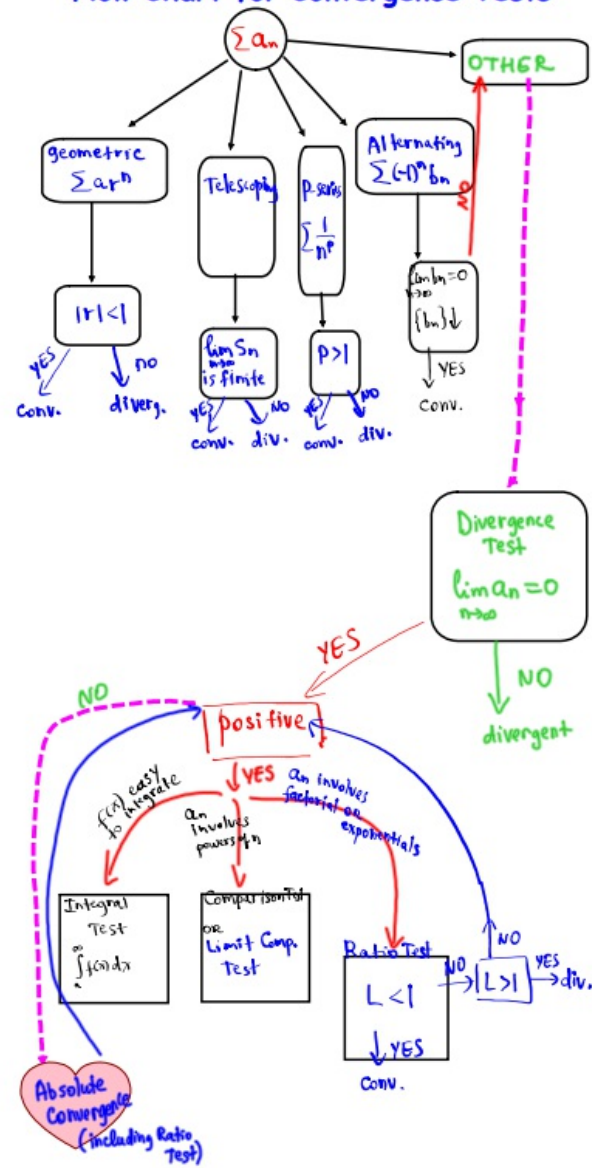 Flow Chart for Convergence Tests
∑aₙ
OTHER
geometric
∑arⁿ
Telescoping
p-series
∑ 1/nᵖ
Alternating
∑(-1)ⁿbₙ
NO
|r|<1
YES
NO
conv.
diverg.
lim Sₙ
n→∞
is finite
YES
NO
conv.
div.
P>1
YES
NO
conv.
div.
lim bₙ=0
n→∞
{bₙ}↓
YES
conv.
Divergence
Test
lim aₙ=0
n→∞
YES
NO
divergent
NO
positive
YES
f(x) easy
to integrate
aₙ
involves
powers of n
aₙ involves
factorial or
exponentials
Integral
Test
∫f(x)dx
∞
Comparison Tst
OR
Limit Comp.
Test
Ratio Test
L<1
NO
L>1
NO
YES
div.
YES
Conv.
Absolute
Convergence
(including Ratio
Test)